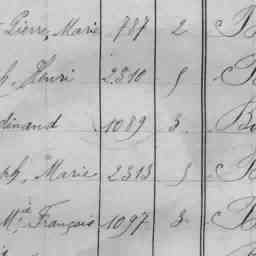 Pierre, Marie 787 2 B
ph, Henri 2310 5 B
dinand 1089 3 Bo
ph, Marie 2313 5 B
Mie François 1097 3 B